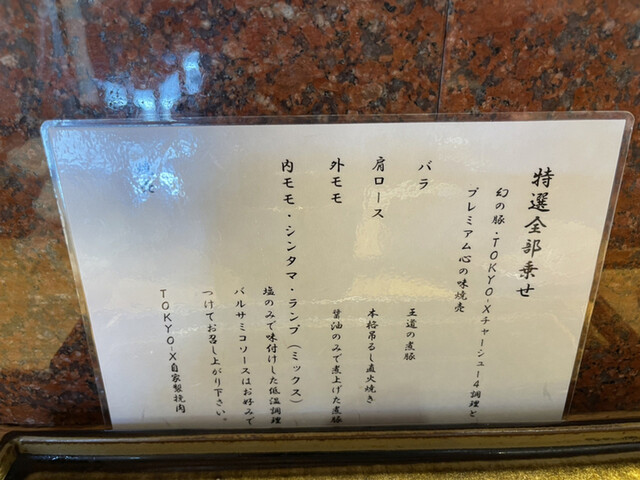 特選全部乗せ
幻の豚・TOKYO-Xチャーシュー4調理と
プレミアム心の味焼売
バラ
王道の煮豚
肩ロース
本格吊るし直火焼き
外モモ
醤油のみで煮上げた煮豚
内モモ・シンタマ・ランプ（ミックス）
塩のみで味付けした低温調理
バルサミコソースはお好みで
つけてお召し上がり下さい。
TOKYO-X自家製挽肉